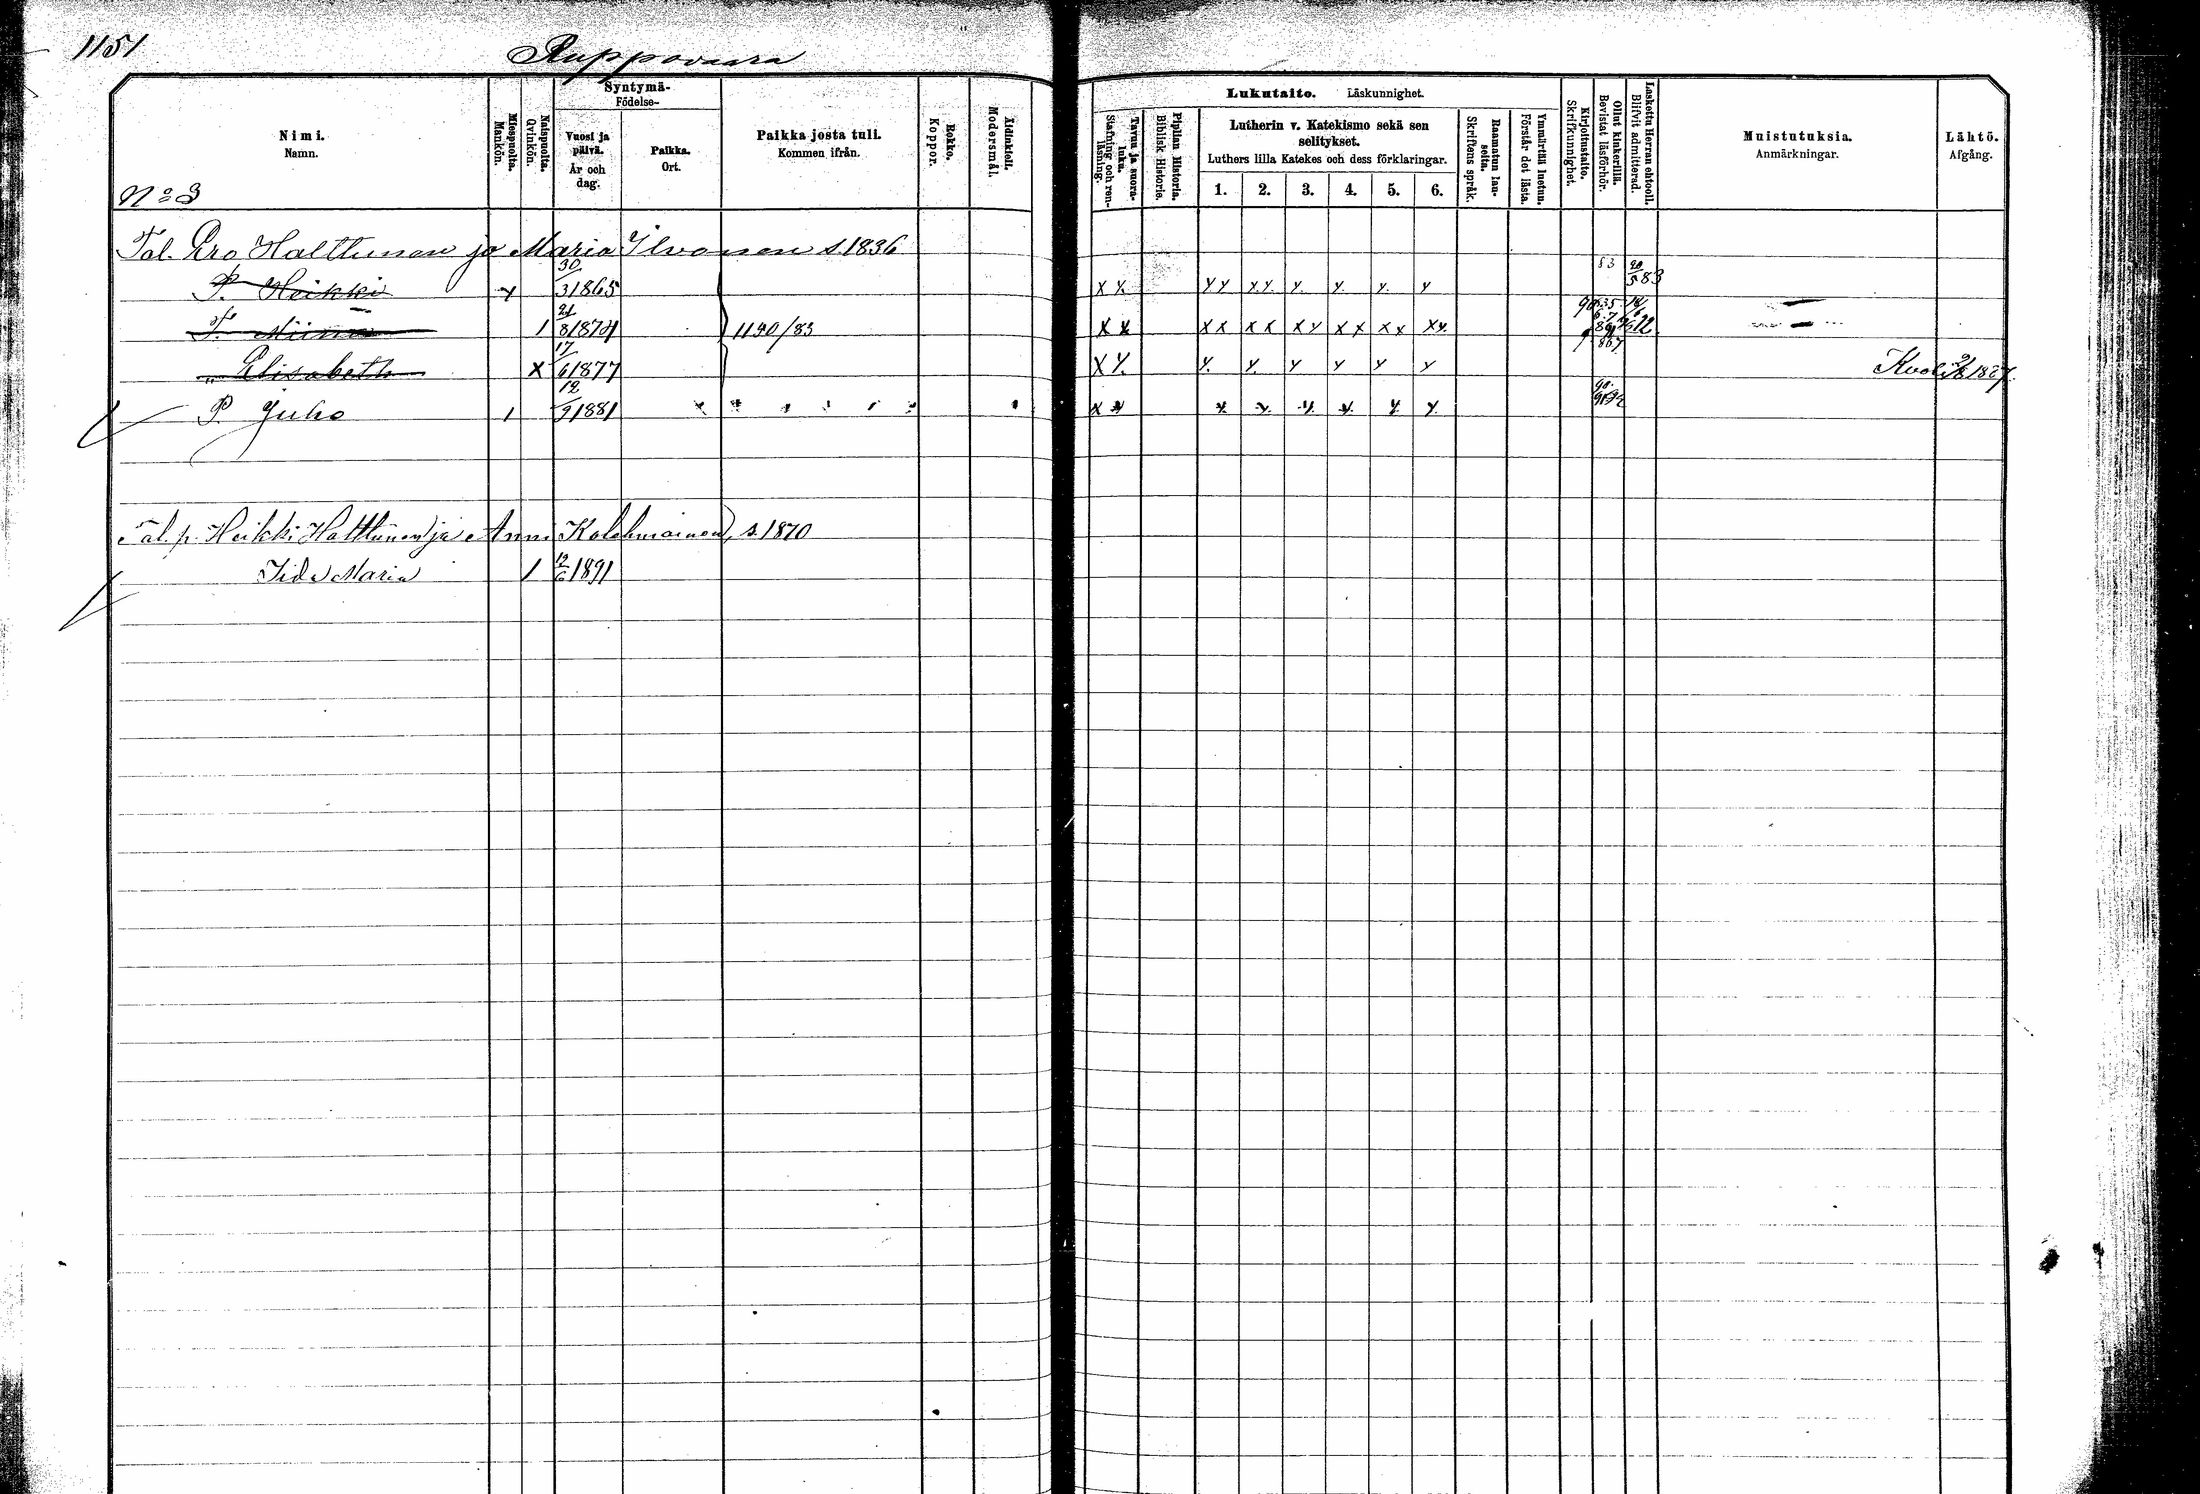 1151
Ruppovaara
Nimi.
Namn.
Miespuolta.
Mankön.
Naispuolta.
Qvinkön.
Syntymä-
Födelse-
Vuosi ja päivä.
År och dag.
Paikka.
Ort.
Paikka josta tuli.
Kommen ifrån.
Rokko.
Koppor.
Äidinkieli.
Modersmål.
Lukutaito. Läskunnighet.
Tavu ja suora-luku.
Stafning och ren-läsning.
Piplian Historia.
Biblisk Historie.
Lutherin v. Katekismo sekä sen
selitykset.
Luthers lilla Katekes och dess förklaringar.
1. 2. 3. 4. 5. 6.
Raamatun lau-seita.
Skriftens språk.
Ymmärtää luetun.
Förstår det lästa.
Kirjoitustaito.
Skrifkunnighet.
Ollut kinkerillä.
Bevistat läsförhör.
Laskettu Herran ehtooll.
Blifvit admitterad.
Muistutuksia.
Anmärkningar.
Lähtö.
Afgång.
No 3
Tal. Ero Halttunen ja Maria Ilvonen s. 1836
P. Heikki 30/3 1865 y x y. y y y.y. y. y. y. y 83 20/5 83
T. Miina 1 21/8 1874 1140/83 x x x x x x x y x x x x x y.
" Elisabeth x 17/6 1877 x y. y. y y y y y
P. Juho 1 12/9 1881 x y y. y. y. y. y. y.
Tal. p. Heikki Halttunen ja Anni Kolehmainen, s. 1870
Iida Maria 1 12/6 1891